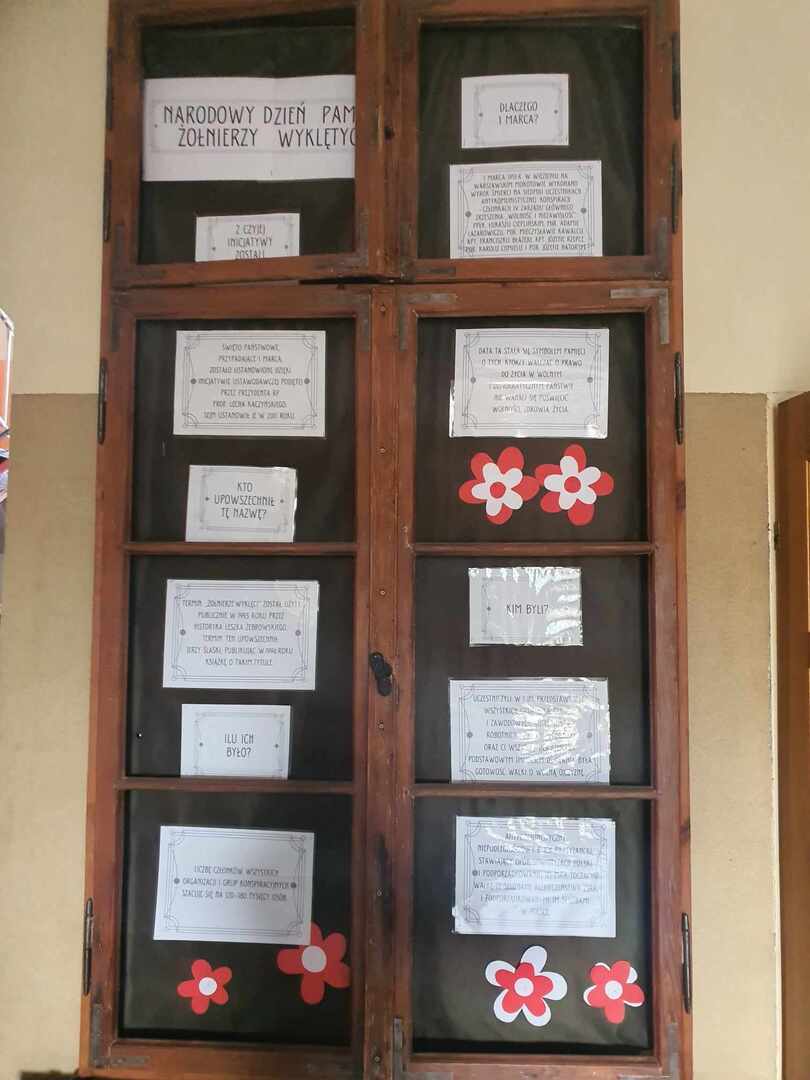 NARODOWY DZIEŃ PAM
ŻOŁNIERZY WYKLĘTYC
Z CZYJEJ
INICJATYWY
ZOSTALI
ŚWIĘTO PAŃSTWOWE,
PRZYPADAJĄCE 1 MARCA,
ZOSTAŁO USTANOWIONE DZIĘKI
INICJATYWIE USTAWODAWCZEJ PODJĘTEJ
PRZEZ PREZYDENTA RP
PROF. LECHA KACZYŃSKIEGO.
SEJM USTANOWIŁ JE W 2011 ROKU.
KTO
UPOWSZECHNIŁ
TĘ NAZWĘ?
TERMIN „ŻOŁNIERZE WYKLĘCI” ZOSTAŁ UŻYTY
PUBLICZNIE W 1993 ROKU PRZEZ
HISTORYKA LESZKA ŻEBROWSKIEGO.
TERMIN TEN UPOWSZECHNIŁ
JERZY ŚLASKI, PUBLIKUJĄC W 1996 ROKU
KSIĄŻKĘ O TAKIM TYTULE.
ILU ICH
BYŁO?
LICZBĘ CZŁONKÓW WSZYSTKICH
ORGANIZACJI I GRUP KONSPIRACYJNYCH
SZACUJE SIĘ NA 120-180 TYSIĘCY OSÓB.
DLACZEGO
1 MARCA?
1 MARCA 1951 R. W WIĘZIENIU NA
WARSZAWSKIM MOKOTOWIE WYKONANO
WYROK ŚMIERCI NA SIEDMIU UCZESTNIKACH
ANTYKOMUNISTYCZNEJ KONSPIRACJI
- CZŁONKACH IV ZARZĄDU GŁÓWNEGO
ZRZESZENIA „WOLNOŚĆ I NIEZAWISŁOŚĆ”
PPŁK. ŁUKASZU CIEPLIŃSKIM, MJR. ADAMIE
LAZAROWICZU, MJR. MIECZYSŁAWIE KAWALCU,
KPT. FRANCISZKU BŁAŻEJU, KPT. JÓZEFIE RZEPCE,
POR. KAROLU CHMIELU I POR. JÓZEFIE BATORYM
DATA TA STAŁA SIĘ SYMBOLEM PAMIĘCI
O TYCH, KTÓRZY WALCZĄC O PRAWO
DO ŻYCIA W WOLNYM
I DEMOKRATYCZNYM PAŃSTWIE
NIE WAHALI SIĘ POŚWIĘCIĆ
WOLNOŚCI, ZDROWIA, ŻYCIA.
KIM BYLI?
UCZESTNICZYLI W NIM PRZEDSTAWICIELE
WSZYSTKICH
I ZAWODOWYCH
ROBOTNICY
ORAZ CI WSZYSCY, DLA KTÓRYCH
PODSTAWOWYM IMPERATYWEM DZIAŁANIA BYŁA
GOTOWOŚĆ WALKI O WOLNĄ OJCZYZNĘ.
ANTYKOMUNISTYCZNI
NIEPODLEGŁOŚCIOWI PARTYZANCI,
STAWIAJĄCY OPÓR SOWIETYZACJI POLSKI
I PODPORZĄDKOWANIU JEJ ZSRR, TOCZĄCY
WALKĘ ZE SŁUŻBAMI BEZPIECZEŃSTWA ZSRR
I PODPORZĄDKOWANYMI IM SŁUŻBAMI
W POLSCE.